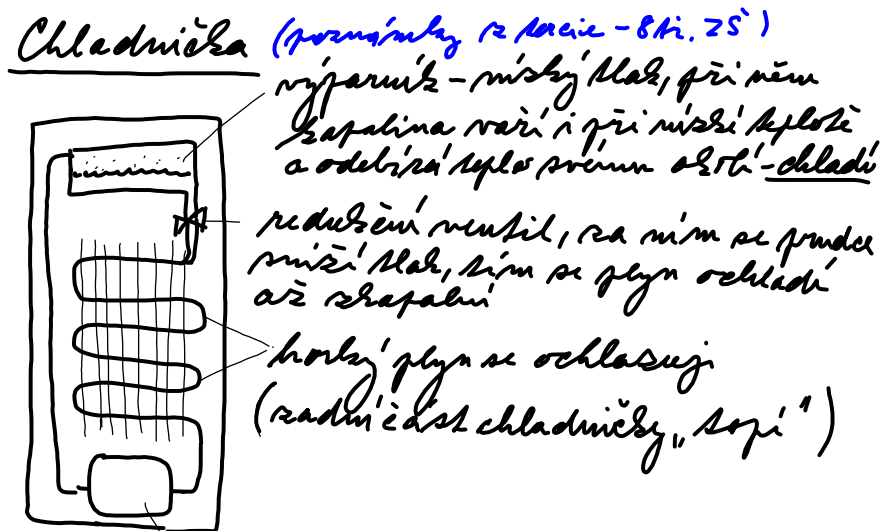 Chladnička (poznámky z tercie - 8 tř. ZŠ)
výparník - nízký tlak, při něm
kapalina vaří i při nízké teplotě
a odebírá teplo svému okolí - chladí
redukční ventil, za ním se prudce
sníží tlak, tím se plyn ochladí
až zkapalní
horký plyn se ochlazuje
(zadní část chladničky „topí")